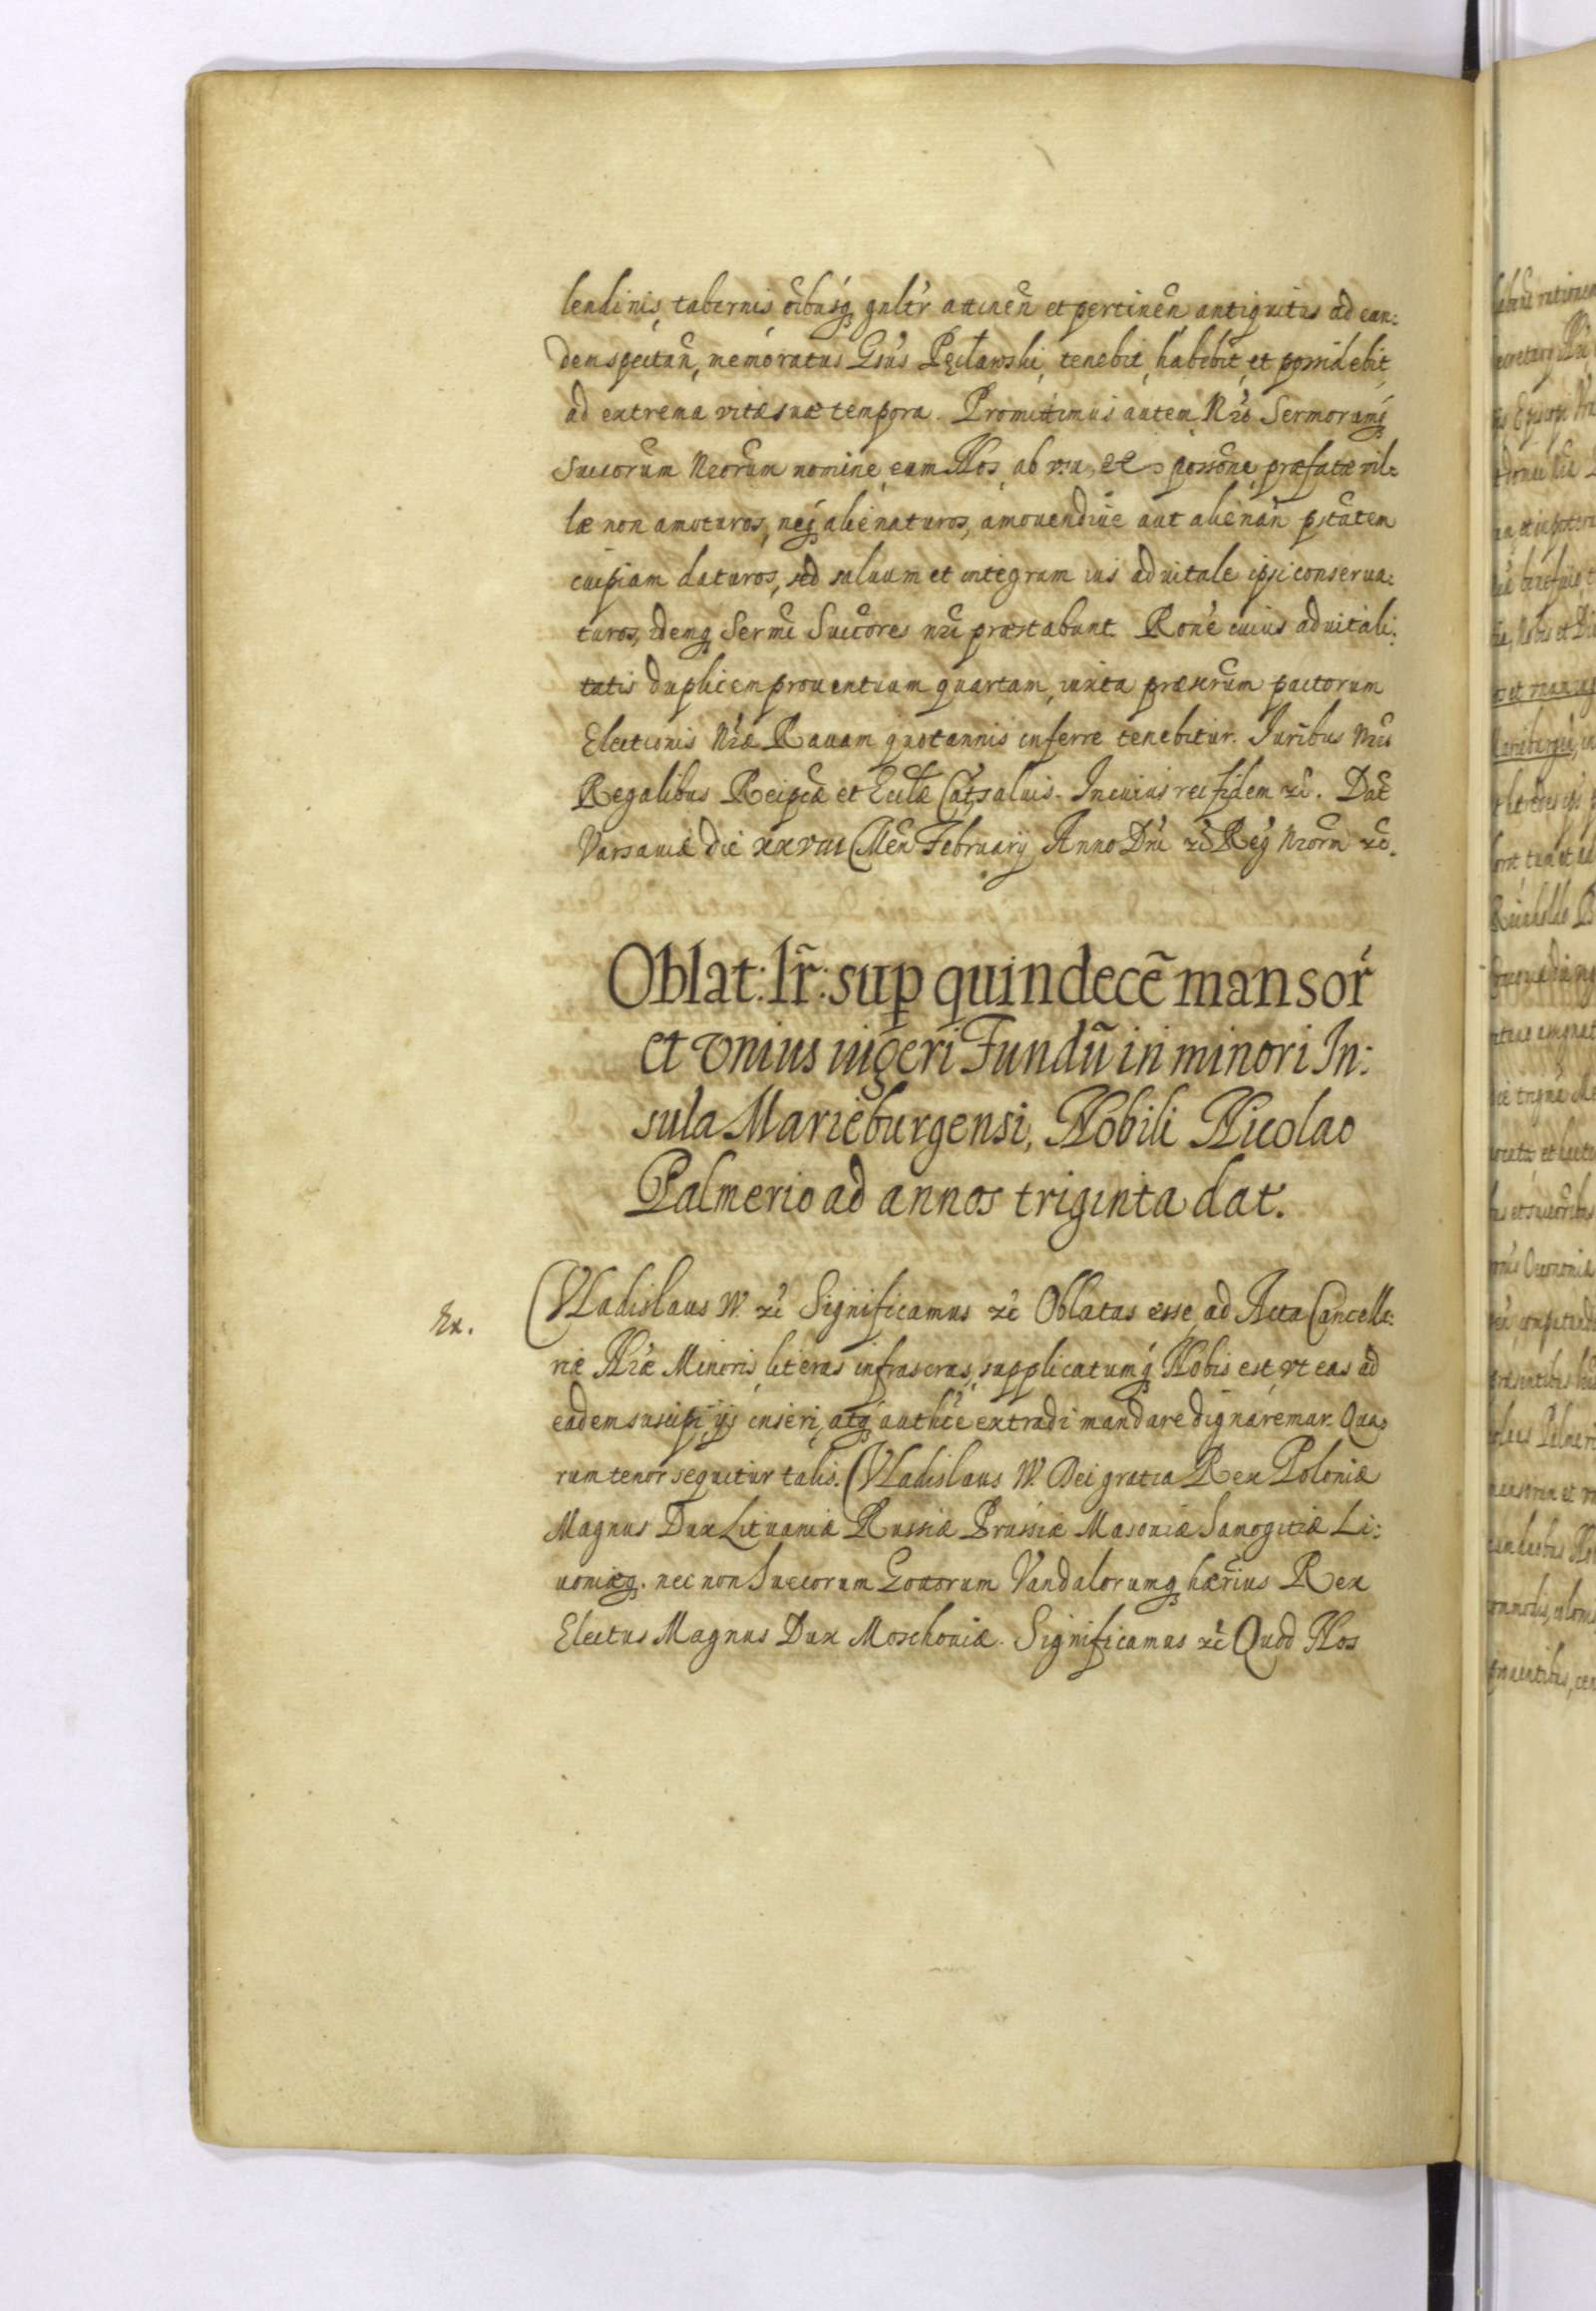 lendinis, tabernis oĩbusq; gnltr attinen̄ et pertinen̄ antiquitus ad ean:
dem spectan̄, memoratus Gsus Pęcławski, tenebit, habebit, et possidebit
ad extrema vitæ suæ tempora. Promittimus autem Nro Sermorumq;
Succorum Nrorum nomine, eum Nos, ab vsu, et possone, præfatæ vil:
læ non amoturos, neq; alienaturos, amouendiue aut alienan̄ ptãtem
cuipiam daturos, sed saluum et integrum ius aduitale ipsi conserua:
turos, idemq; Sermi Succores nri præstabunt. Rone cuius aduitali:
tatis duplicem prouentuum quartam, iuxta præscrum pactorum
Electionis Nræ Rauam quotannis inferre tenebitur. Iuribus Nris
Regalibus Reipcæ et Ecclæ Cath saluis. In cuius rei fidem xc. Dat
Varsauiæ die xxviii Men̄ February Anno Dni xc Reg Nrorm xc.
Oblat: lr̃: sup quindecẽ mansor
et vnius iugeri Fundũ in minori In:
sula Marieburgensi, Nobili Nicolao
Palmerio ad annos triginta dat.
Ex.
Vladislaus IV. xc Significamus xc Oblatas esse, ad Acta Cancella:
riæ Nræ Minoris, literas infrascras, supplicatumq; Nobis est, vt eas ad
eadem suscipi, ijs inseri, atq; authce extradi mandare dignaremur. Qua:
rum tenor sequitur talis. Vladislaus IV. Dei gratia Rex Poloniæ
Magnus Dux Lituaniæ Russiæ Prussiæ Masouiæ Samogitiæ Li:
uoniæq;. nec non Suecorum Gottorum Vandalorumq; hærius Rex
Electus Magnus Dux Moschouiæ. Significamus xc Quod Nos